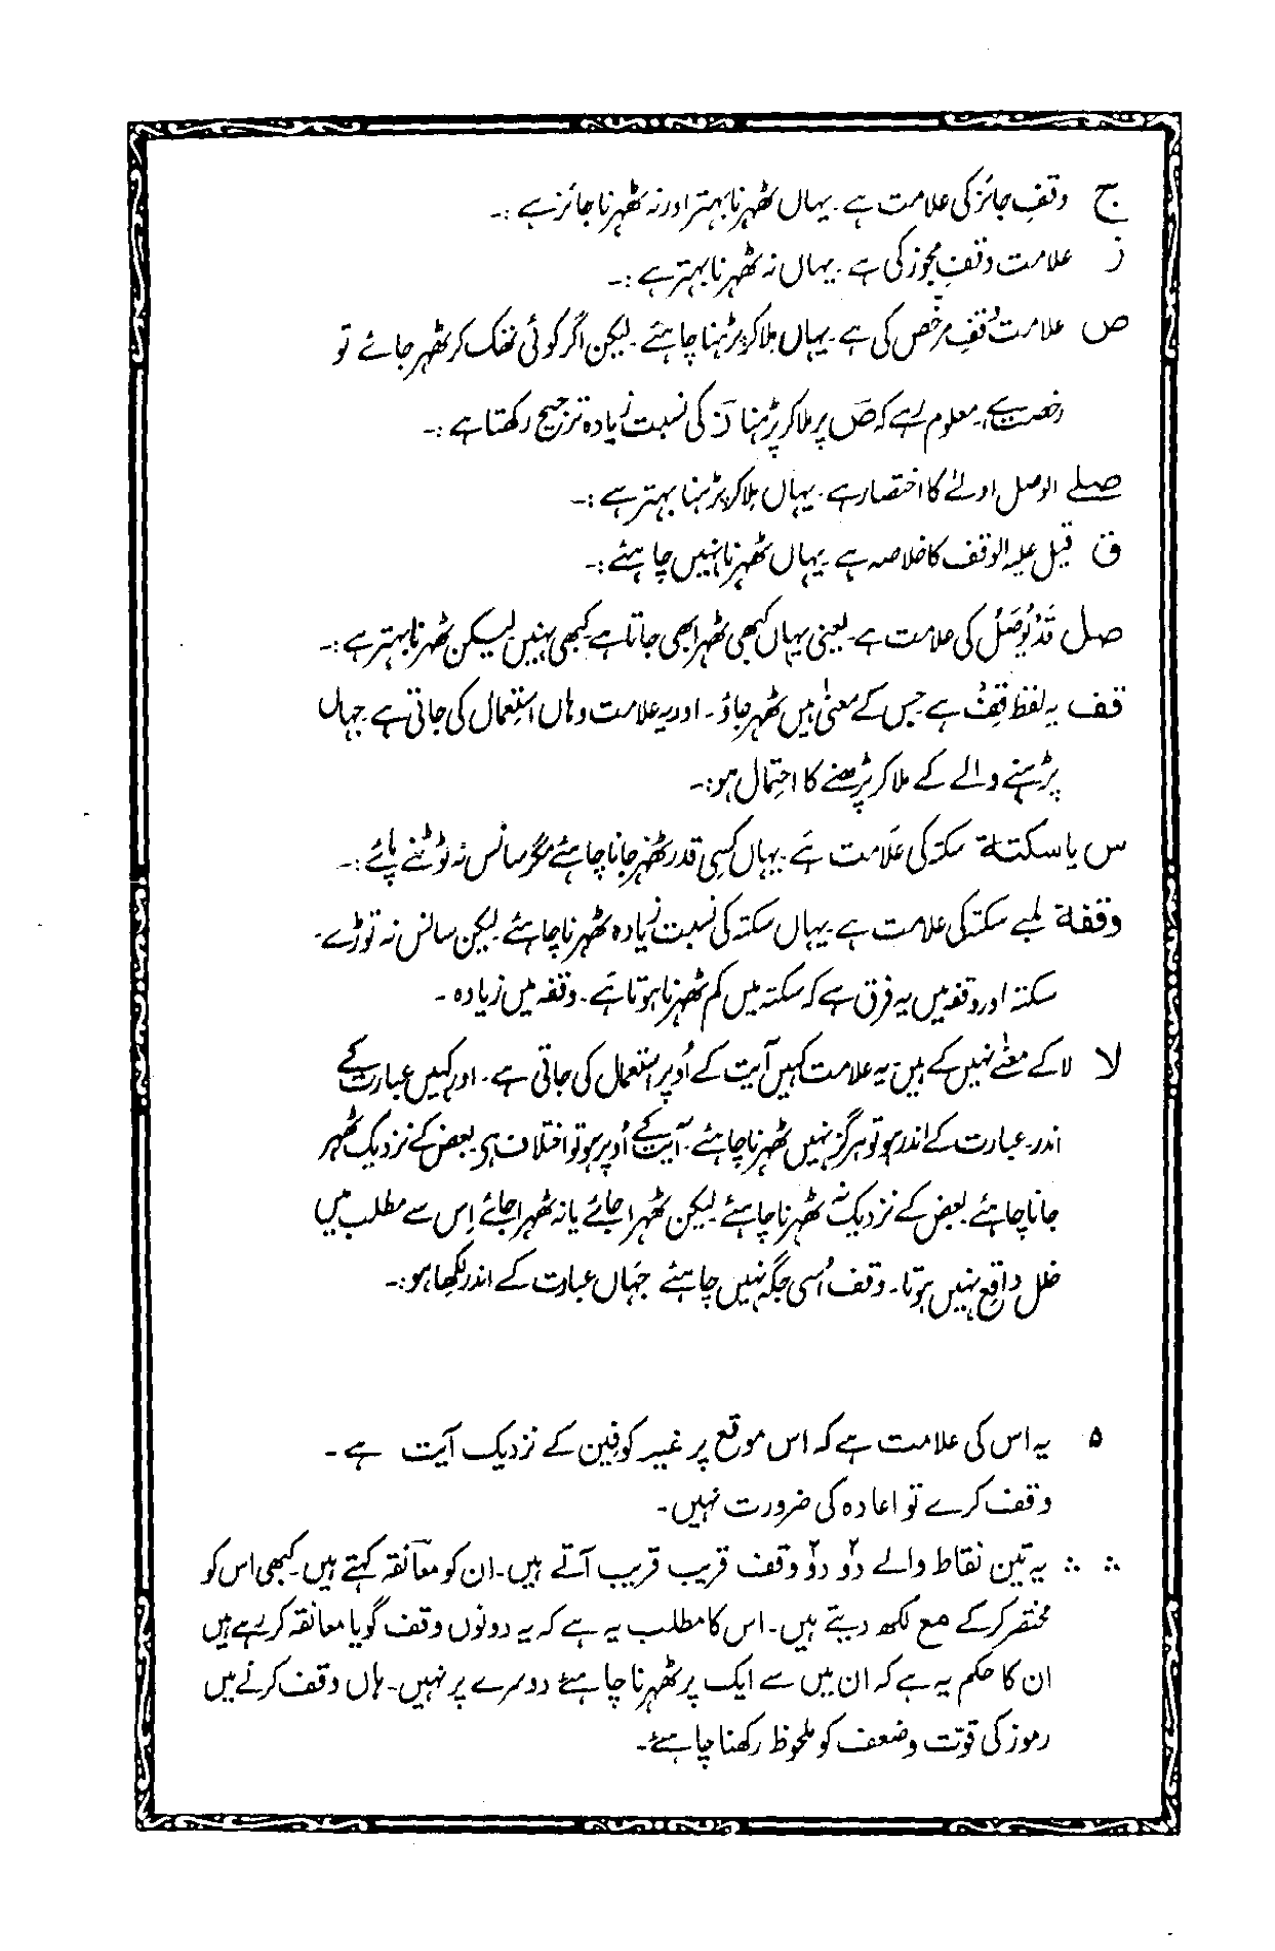 ج وقفِ جائز کی علامت ہے۔ یہاں ٹھہرنا بہتر اور نہ ٹھہرنا جائز ہے :۔
ز علامت وقفِ مجوز کی ہے۔ یہاں نہ ٹھہرنا بہتر ہے :۔
ص علامت وقفِ مرخص کی ہے۔ یہاں ملا کر پڑہنا چاہئے۔ لیکن اگر کوئی تھک کر ٹھہر جائے تو
رخصت ہے۔ معلوم رہے کہ صؔ پر ملا کر پڑہنا زؔ کی نسبت زیادہ ترجیح رکھتا ہے :۔
صلے الوصل اولےٰ کا اختصار ہے۔ یہاں ملا کر پڑہنا بہتر ہے :۔
ق قیل علیہ الوقف کا خلاصہ ہے یہاں ٹھہرنا نہیں چاہئے :۔
صل قَدْ یُوْصَلُ کی علامت ہے۔ یعنی یہاں کبھی ٹھہرا بھی جاتا ہے کبھی نہیں۔ لیکن ٹھہرنا بہتر ہے :۔
قف یہ لفظ قِفْ ہے جس کے معنیٰ ہیں ٹھہر جاؤ۔ اور یہ علامت وہاں استعمال کی جاتی ہے۔ جہاں
پڑہنے والے کے ملا کر پڑھنے کا احتمال ہو :۔
س یا سکتة سکتہ کی علامت ہے۔ یہاں کسی قدر ٹھہر جانا چاہئے مگر سانس نہ ٹوٹنے پائے :۔
وقفة لمبے سکتہ کی علامت ہے۔ یہاں سکتہ کی نسبت زیادہ ٹھہرنا چاہئے۔ لیکن سانس نہ توڑے۔
سکتہ اور وقفہ میں یہ فرق ہے کہ سکتہ میں کم ٹھہرنا ہوتا ہے۔ وقفہ میں زیادہ ۔
لا لا کے معنےٰ نہیں کے ہیں یہ علامت کہیں آیت کے اُوپر استعمال کی جاتی ہے۔ اور کہیں عبارت کے
اندر۔ عبارت کے اندر ہو تو ہرگز نہیں ٹھہرنا چاہئے۔ آیت کے اُوپر ہو تو اختلاف ہی بعض کے نزدیک ٹھہر
جانا چاہئے بعض کے نزدیک نہ ٹھہرنا چاہئے لیکن ٹھہرا جائے یا نہ ٹھہرا جائے اِس سے مطلب میں
خلل واقع نہیں ہوتا۔ وقف اُسی جگہ نہیں چاہئے جہاں عبارت کے اندر لکھا ہو :۔
۵ یہ اس کی علامت ہے کہ اس موقع پر غیر کوفیین کے نزدیک آیت ہے ۔
وقف کرے تو اعادہ کی ضرورت نہیں۔
∴ ∴ یہ تین نقاط والے دو دو وقف قریب قریب آتے ہیں۔ ان کو معانقہ کہتے ہیں۔ کبھی اس کو
مختصر کر کے مع لکھ دیتے ہیں۔ اس کا مطلب یہ ہے کہ یہ دونوں وقف گویا معانقہ کر رہے ہیں
ان کا حکم یہ ہے کہ ان میں سے ایک پر ٹھہرنا چاہئے دوسرے پر نہیں۔ ہاں وقف کرنے میں
رموز کی قوّت و ضعف کو ملحوظ رکھنا چاہئے۔